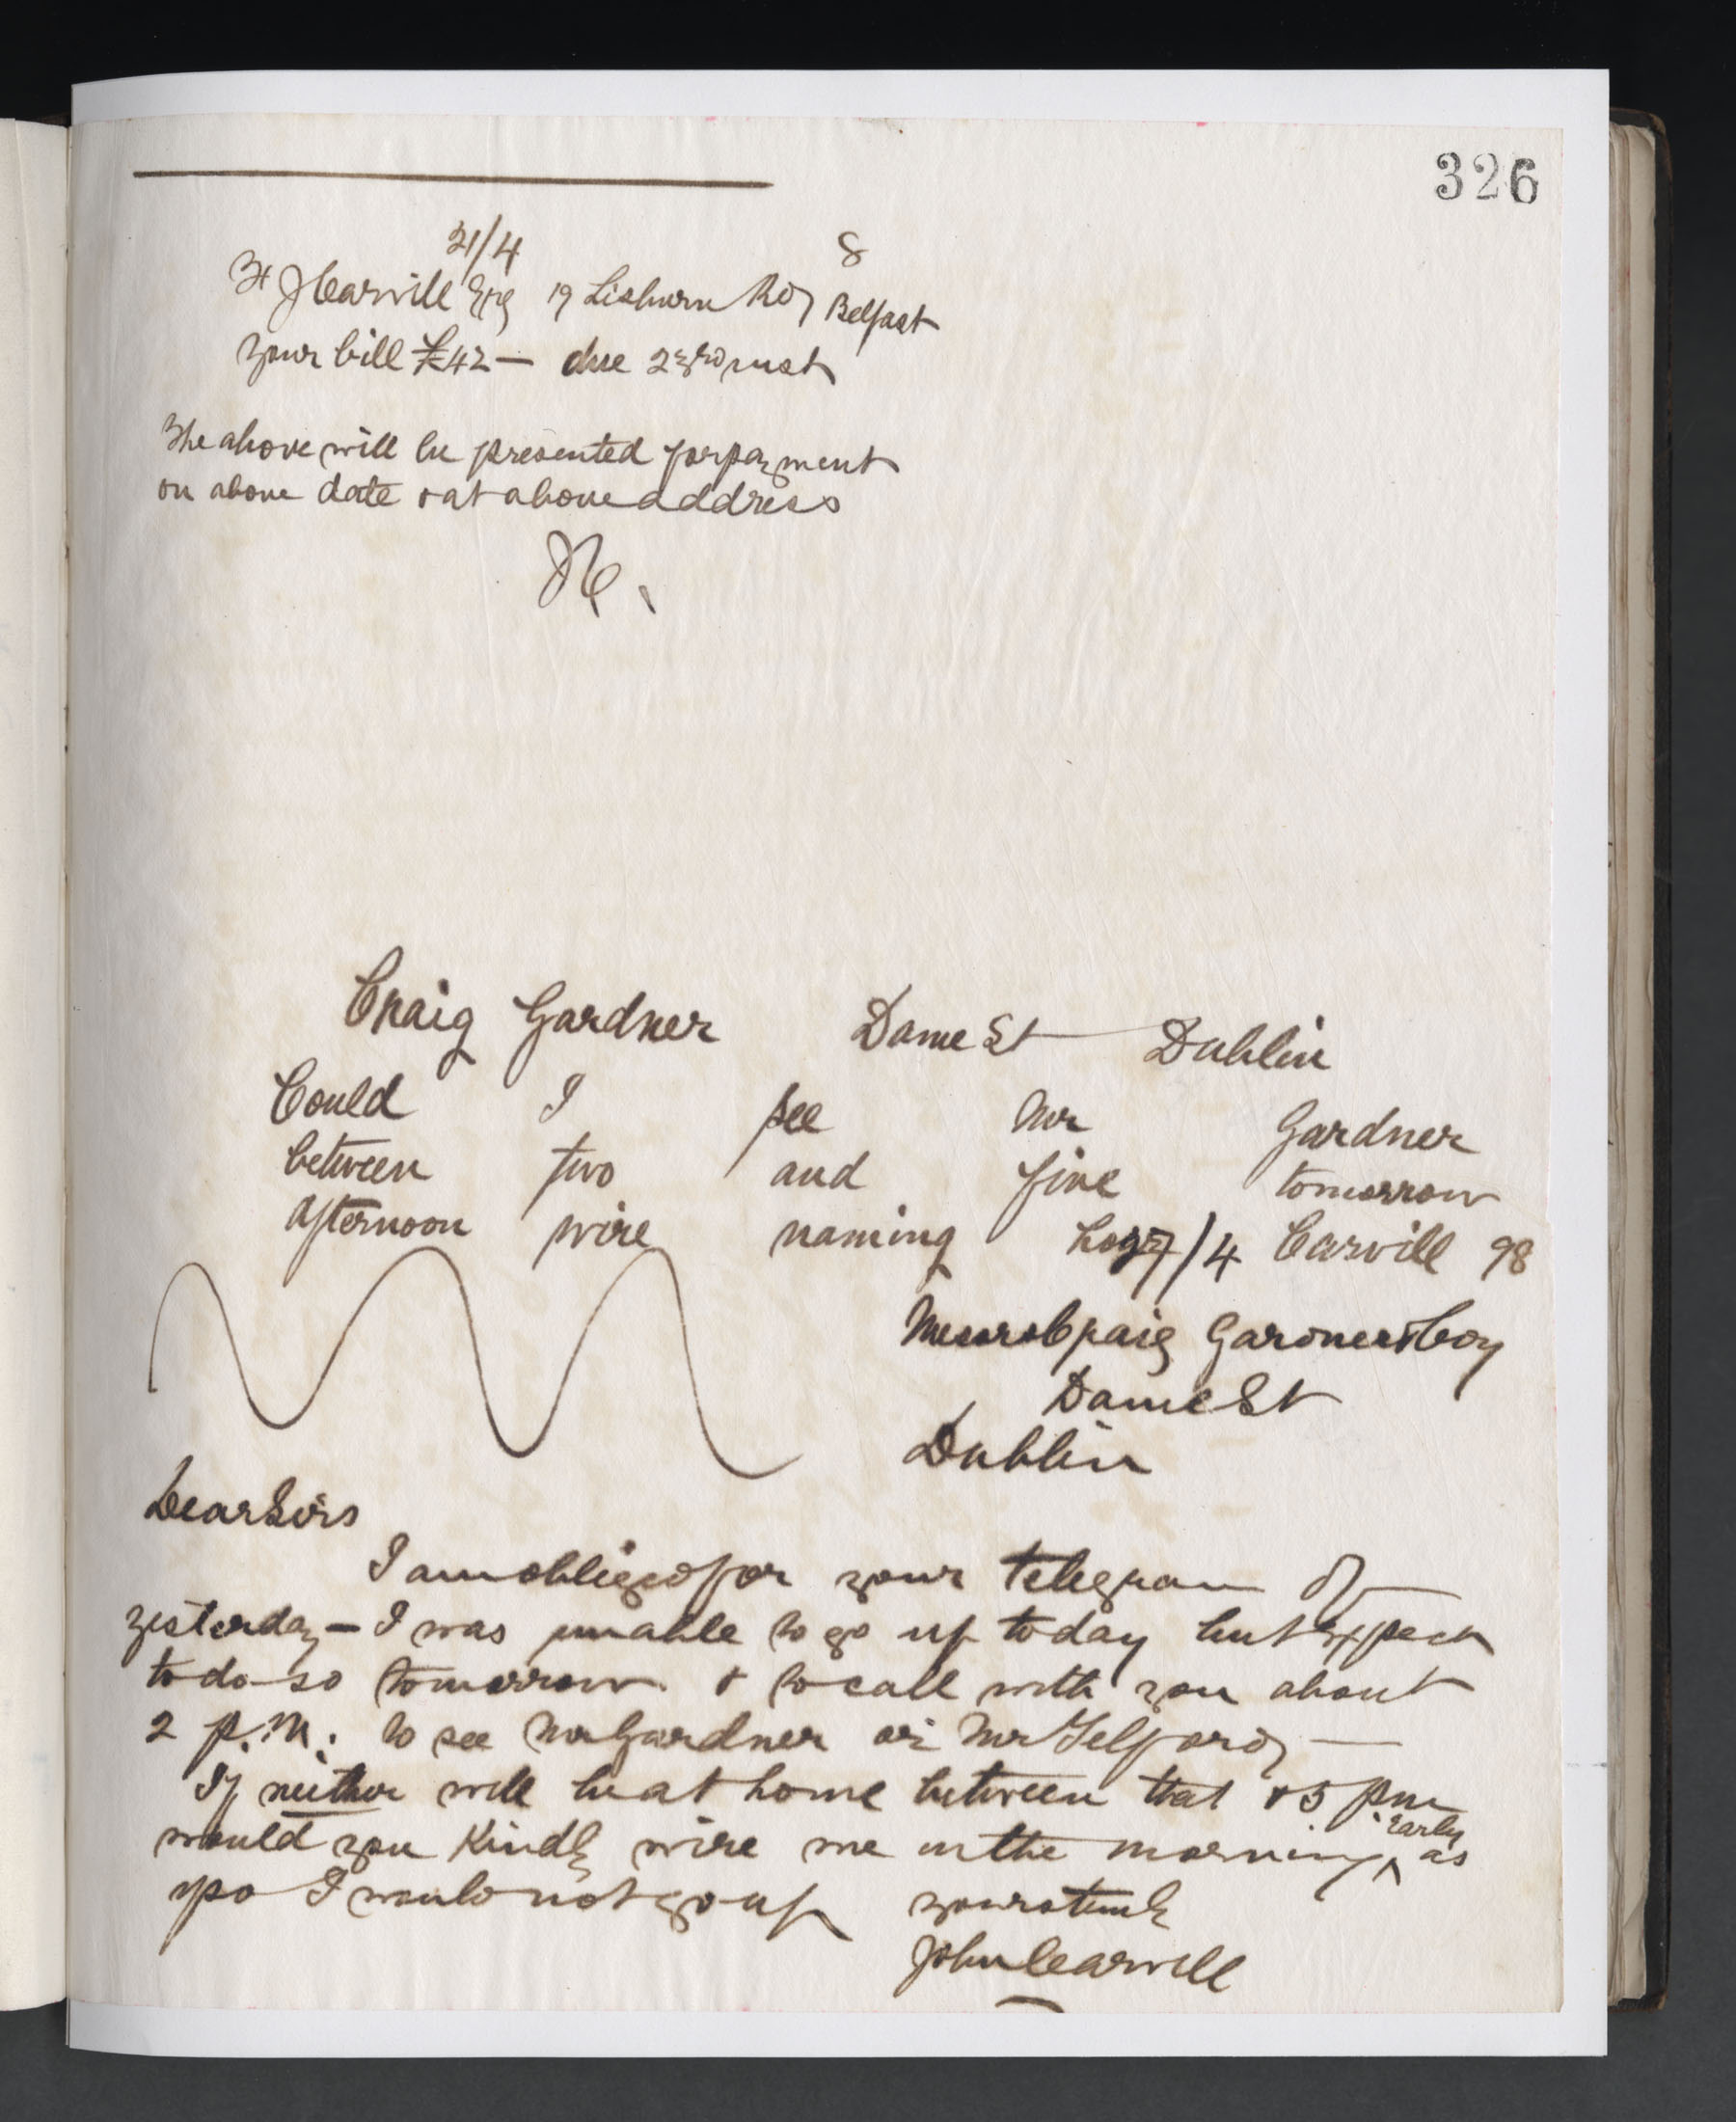 326
21/4 8
J Carvill Esq 19 Lisburn Rd Belfast
Your bill £42 — due 23rd inst
The above will be presented for payment
on above date & at above address
JC.
Craig Gardner Dame St Dublin
Could I see Mr Gardner
between two and five tomorrow
afternoon wire naming hour
27/4 Carvill 98
Messrs Craig Gardner & Coy
Dame St
Dublin
Dear Sirs
I am obliged for your telegram of
yesterday — I was unable to go up today but expect
to do so tomorrow & to call with you about
2 p.m. to see Mr Gardner or Mr Telford —
If neither will be at home between that & 5 pm
would you kindly wire me in the morning early as
if so I would not go up yours truly
John Carvill